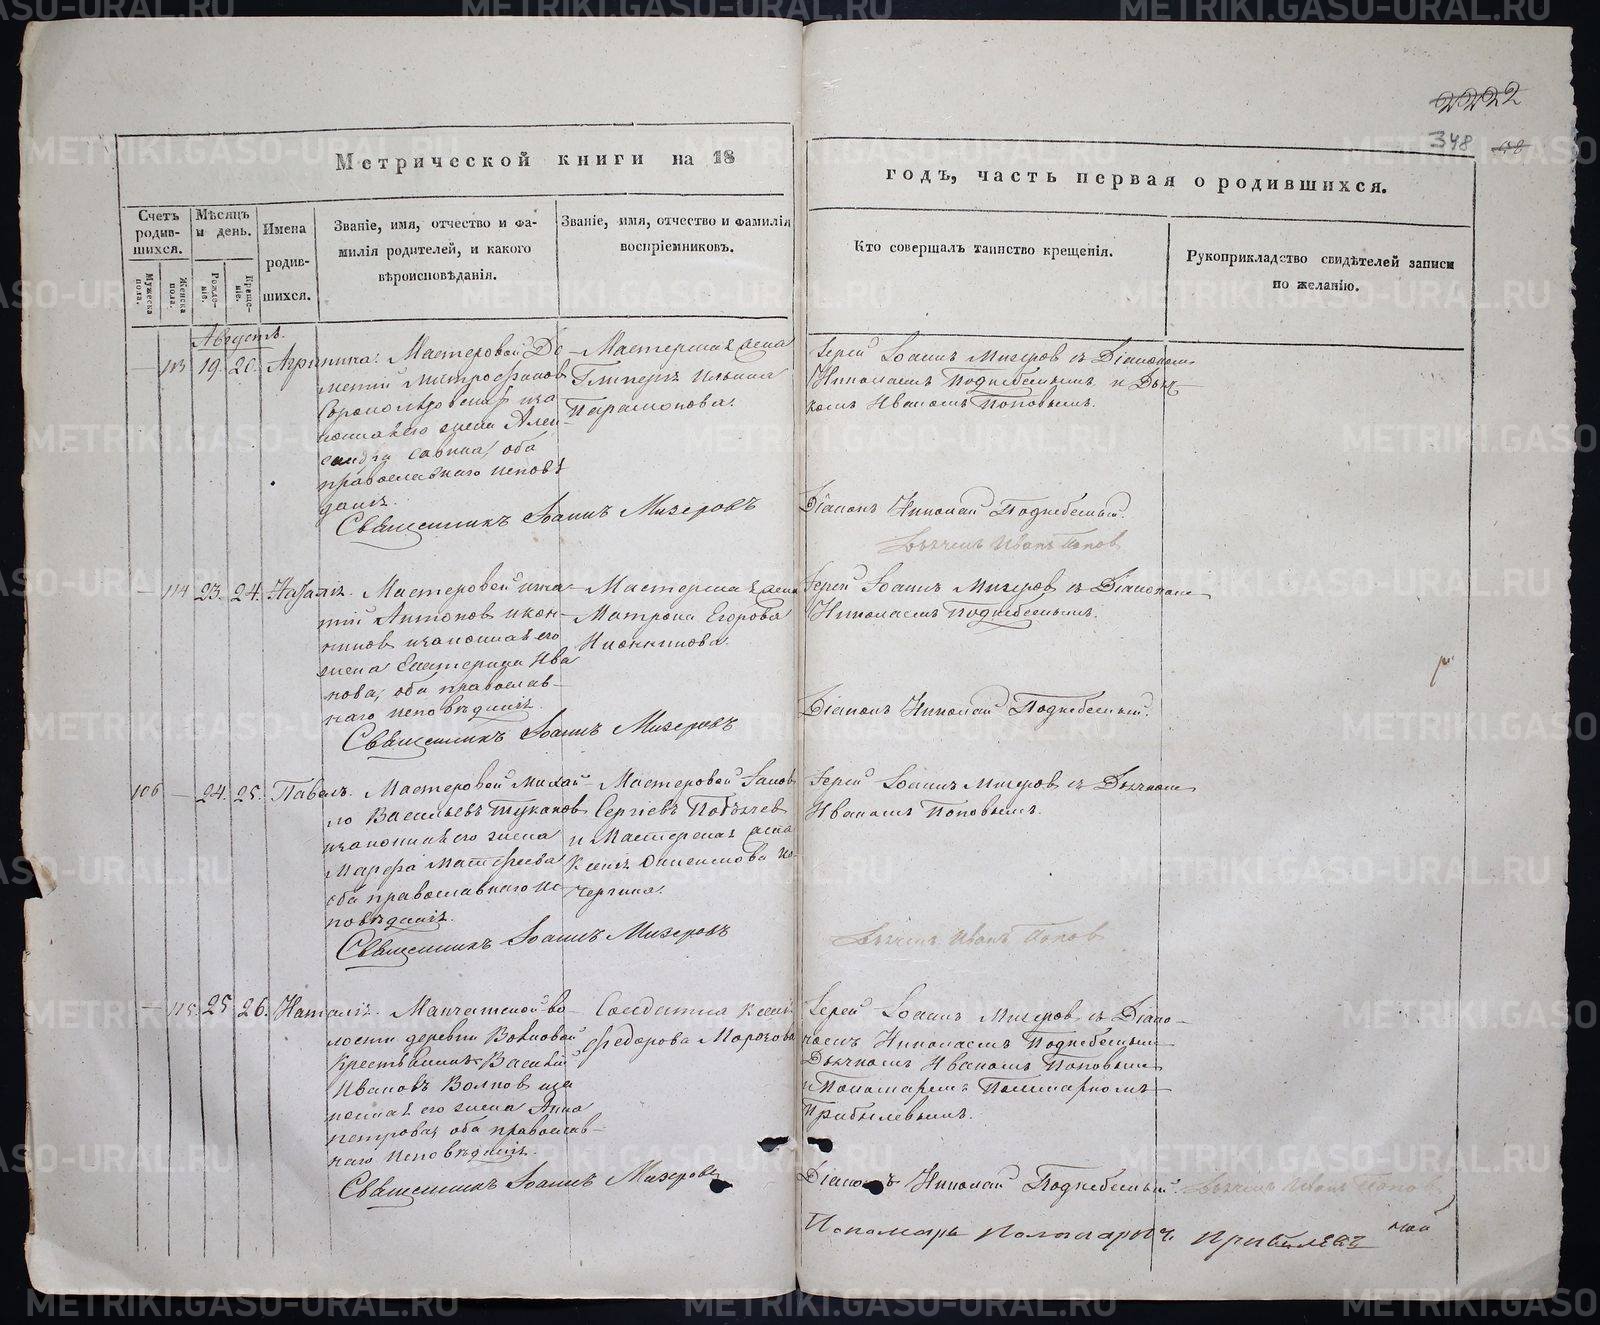 2222
348 48
Метрической книги на 18
годъ, часть первая о родившихся.
Счетъ родившихся.
Мѣсяцъ и день.
Имена родившихся.
Званіе, имя, отчество и фамилія родителей, и какого вѣроисповѣданія.
Званіе, имя, отчество и фамилія воспріемниковъ.
Кто совершалъ таинство крещенія.
Рукоприкладство свидѣтелей записи по желанію.
Мужеска пола.
Женска пола.
Рожденіе.
Крещеніе.
Августъ.
— 113 19. 20. Агрипина.
Мастеровой До-
ментій Митрофановъ
его жена Алек-
сандра Савина, оба
православнаго исповѣ
данія.
Священникъ Іоаннъ Мизеровъ
Мастерская жена
Гликерія Ильина
Парамонова.
Іерей Іоаннъ Мизеровъ съ Діакономъ
Николаемъ Поднебеснымъ и Дьяч-
комъ Иваномъ Поповымъ.
Діаконъ Николай Поднебесный.
Дьячекъ Иванъ Попов
— 114 23. 24. Наталія.
Мастеровой Игна-
тій Антонов Икон-
ников и законная его
жена Екатерина Ива
нова, оба православ-
наго исповѣданія.
Священникъ Іоаннъ Мизеровъ
Мастерская жена
Матрона Егорова
Иконникова.
Іерей Іоаннъ Мизеров съ Діакономъ
Николаемъ Поднебеснымъ.
Діаконъ Николай Поднебесный.
106 — 24. 25. Павелъ.
Мастеровой Михай
ло Васильевъ Туканов
и законная его жена
Марфа Матфеева
оба православнаго ис-
повѣданія.
Священникъ Іоаннъ Мизеровъ
Мастеровой
Сергіевъ
и Мастерская жена
Ксенія
Іерей Іоаннъ Мизеров съ Дьячкомъ
Иваномъ Поповымъ.
Дьячекъ Иванъ Попов
— 115. 25 26. Наталія.
во-
лости деревни Волковой
крестьянинъ Василій
Ивановъ Волков и за
конная его жена Анна
Петрова, оба православ-
наго исповѣданія.
Священникъ Іоаннъ Мизеров
Солдатка Ксенія
Федорова Морозова
Іерей Іоаннъ Мизеров съ Діако-
номъ Николаемъ Поднебеснымъ
Дьячкомъ Иваномъ Поповымъ
и Пономаремъ Поликарпомъ
Прибылевымъ.
Діаконъ Николай Поднебесный. Дьячекъ Иванъ Попов
Пономарь Поликарпъ Прибылевъ
METRIKI.GASO-URAL.RU